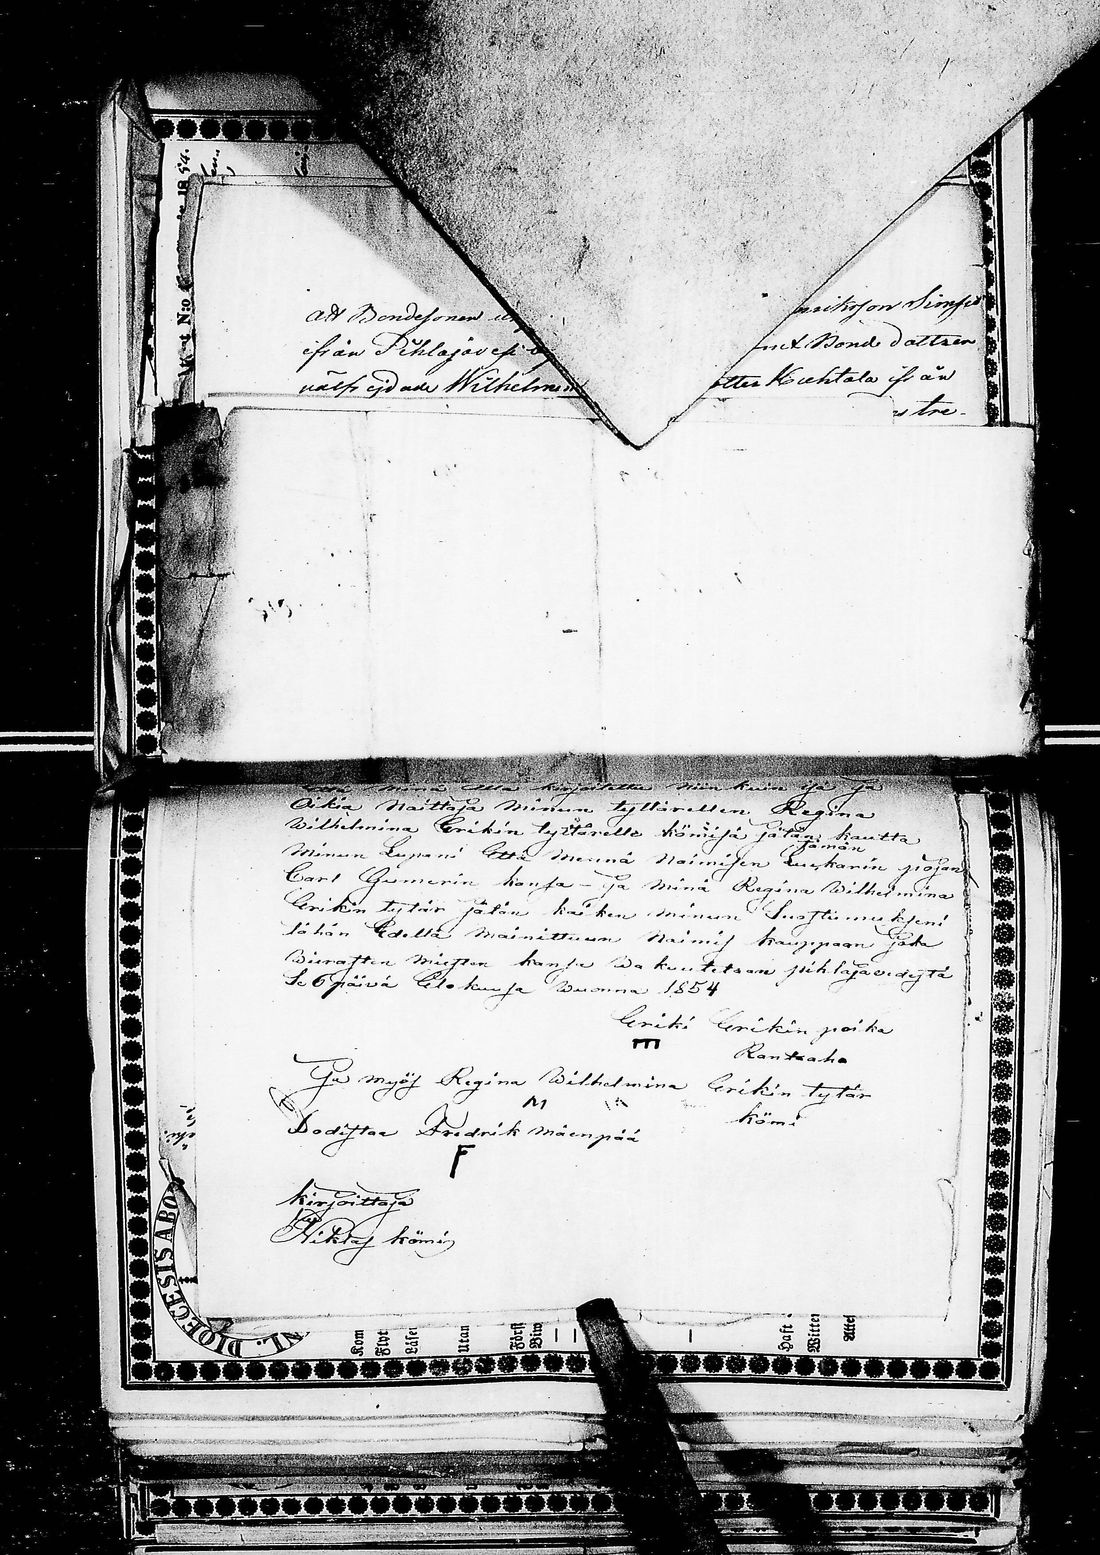 att Bondesonen
nrikson Simsiö
ifrån Pihlajavesi
Bond dottren
välfrejdade Wilhelmin
otter Kuhtala ifrån
stre-
Että Minä alla kirjoitettu niin kuin isä ja
Oikia Naittaja Minun tyttärellen Regina
Wilhelmina Erikin tyttärelle kömistä Jätän kautta
tämän
Minun Lupani Että Mennä Naimisen Luskarin pojan
Carl Gumerin kansa - Ja Minä Regina Wilhelmina
Erikin tytär Jätän kaiken Minun Suostumukseni
tähän Edellä Mainittuun Naimis kauppaan Joka
Wierasten Miesten kansa Wakuutetaan pihlajavedestä
Se 6 päivä Elokuusa Wuonna 1854
Eriki Erikin poika
Rantaaho
Ja Myös Regina Wilhelmina Erikin tytär
kömi
M
Todistaa Fredrik Mäenpää
F
kirjoittaja
Niklas kömi
DIOECESIS ABO
Kom
Flyt
Läser
Utan
Först
Biw
Haft
Witter
Attes